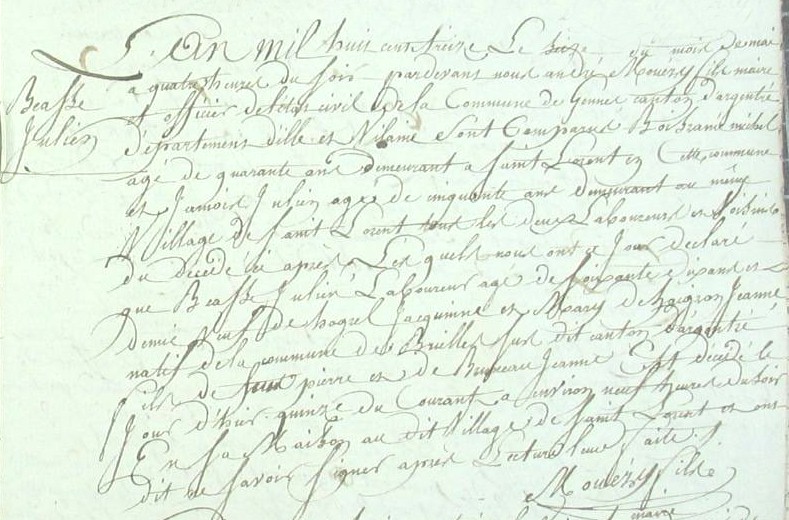 L'an mil huit cent treize Le seize du mois de mai
a quatre heures du soir pardevant nous andré Mouëzy fils maire
Beasse
et officier de letat civil de la Commune de Gennes canton d'argentré
Julien
département dille et Vilaine Sont Comparus michel
agé de quarante ans demeurant a Saint Lorent en Cette commune
et Jamois Julien agé de cinquante ans demeurant au même
Village de Saint Lorent tous les deux Laboureurs et Voisins
du décédé ci après Les quels nous ont a Jour declaré
que Beasse Julien Laboureur agé de soixante et dix ans et
demie veuf de Jacquinne et Mary de Jeanne
natif de la commune de Brielles sus dit canton d'argentré
fils de pierre et de Jeanne Est décédé le
Jour d'hier quinze du Courant a environ neuf heures du soir
En Sa Maison au dit Village de Saint Lorent et ont
dit ne Savoir Signer après Lecture Leue faite
Mouëzy fils
maire